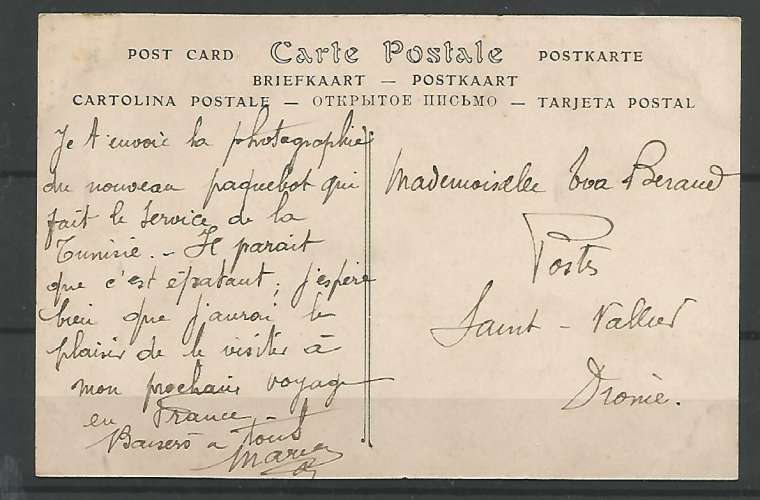 POST CARD Carte Postale POSTKARTE
BRIEFKAART — POSTKAART
CARTOLINA POSTALE — ОТКРЫТОЕ ПИСЬМО — TARJETA POSTAL
Je t'envoie la photographie
du nouveau paquebot qui
fait le service de la
Tunisie. - Il parait
que c'est épatant; j'espère
bien que j'aurai le
plaisir de le visiter à
mon prochain voyage
en France -
Baisers à tous
Marie
Mademoiselle Eva Beraud
Postes
Saint-Vallier
Drome.